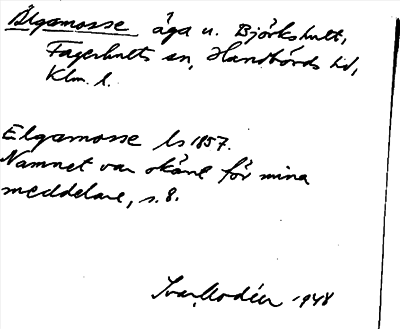 Älgamosse äga u. Björkshult,
Fagerhults sn, Handbörds hd,
Klm. l.
Elgamosse ls 1857.
Namnet var okänt för mina
meddelare, s. 8.
Ivar Modéer 1948